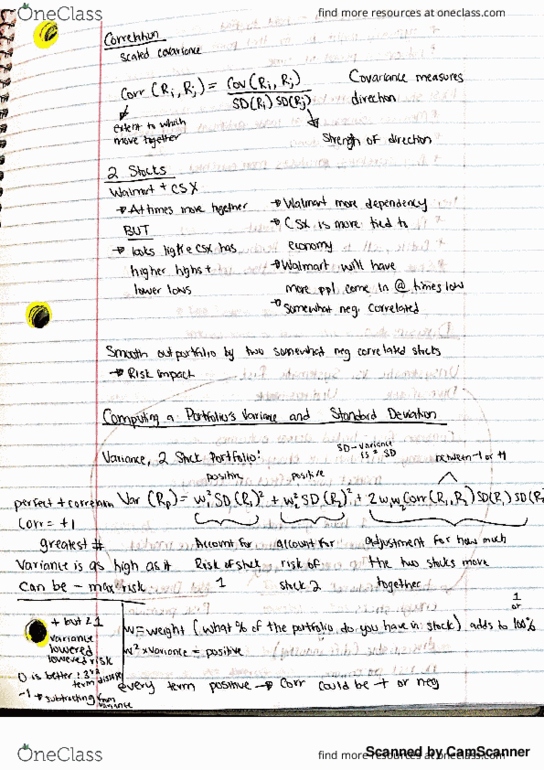 OneClass
find more resources at oneclass.com
Correlation
scaled covariance
Corr (Ri, Rj) = Cov (Ri, Rj) / SD(Ri) SD(Rj)
Covariance measures
direction
extent to which
move together
Strength of direction
2 Stocks
Walmart + CSX
→ At times move together
BUT
→ looks like CSX has
higher highs +
lower lows
→ Walmart more dependency
→ CSX is more tied to
economy
→ Walmart will have
more ppl come in @ times low
→ Somewhat neg. correlated
Smooth out portfolio by two somewhat neg correlated stocks
→ Risk impact
Computing a Portfolio's Variance and Standard Deviation
Variance, 2 Stock Portfolio:
SD → variance
is ² SD
between -1 or +1
positive
positive
perfect + correlation
Var (Rp) = w₁² SD (R₁)² + w₂² SD (R₂)² + 2w₁w₂ Corr (R₁, R₂) SD(R₁) SD(R₂
Corr = +1
greatest #
Variance is as high as it
can be - max risk
Account for
Risk of stock
1
account for
risk of
stock 2
adjustment for how much
the two stocks move
together
+ but < 1
variance
lowered
lowered risk
0 is better: 3rd
term
-1 → subtracting from
variance
1
or
w = weight (what % of the portfolio do you have in stock) adds to 100%
w² x variance = positive
every term positive → Corr could be + or neg
OneClass
find more resources at oneclass.com
Scanned by CamScanner